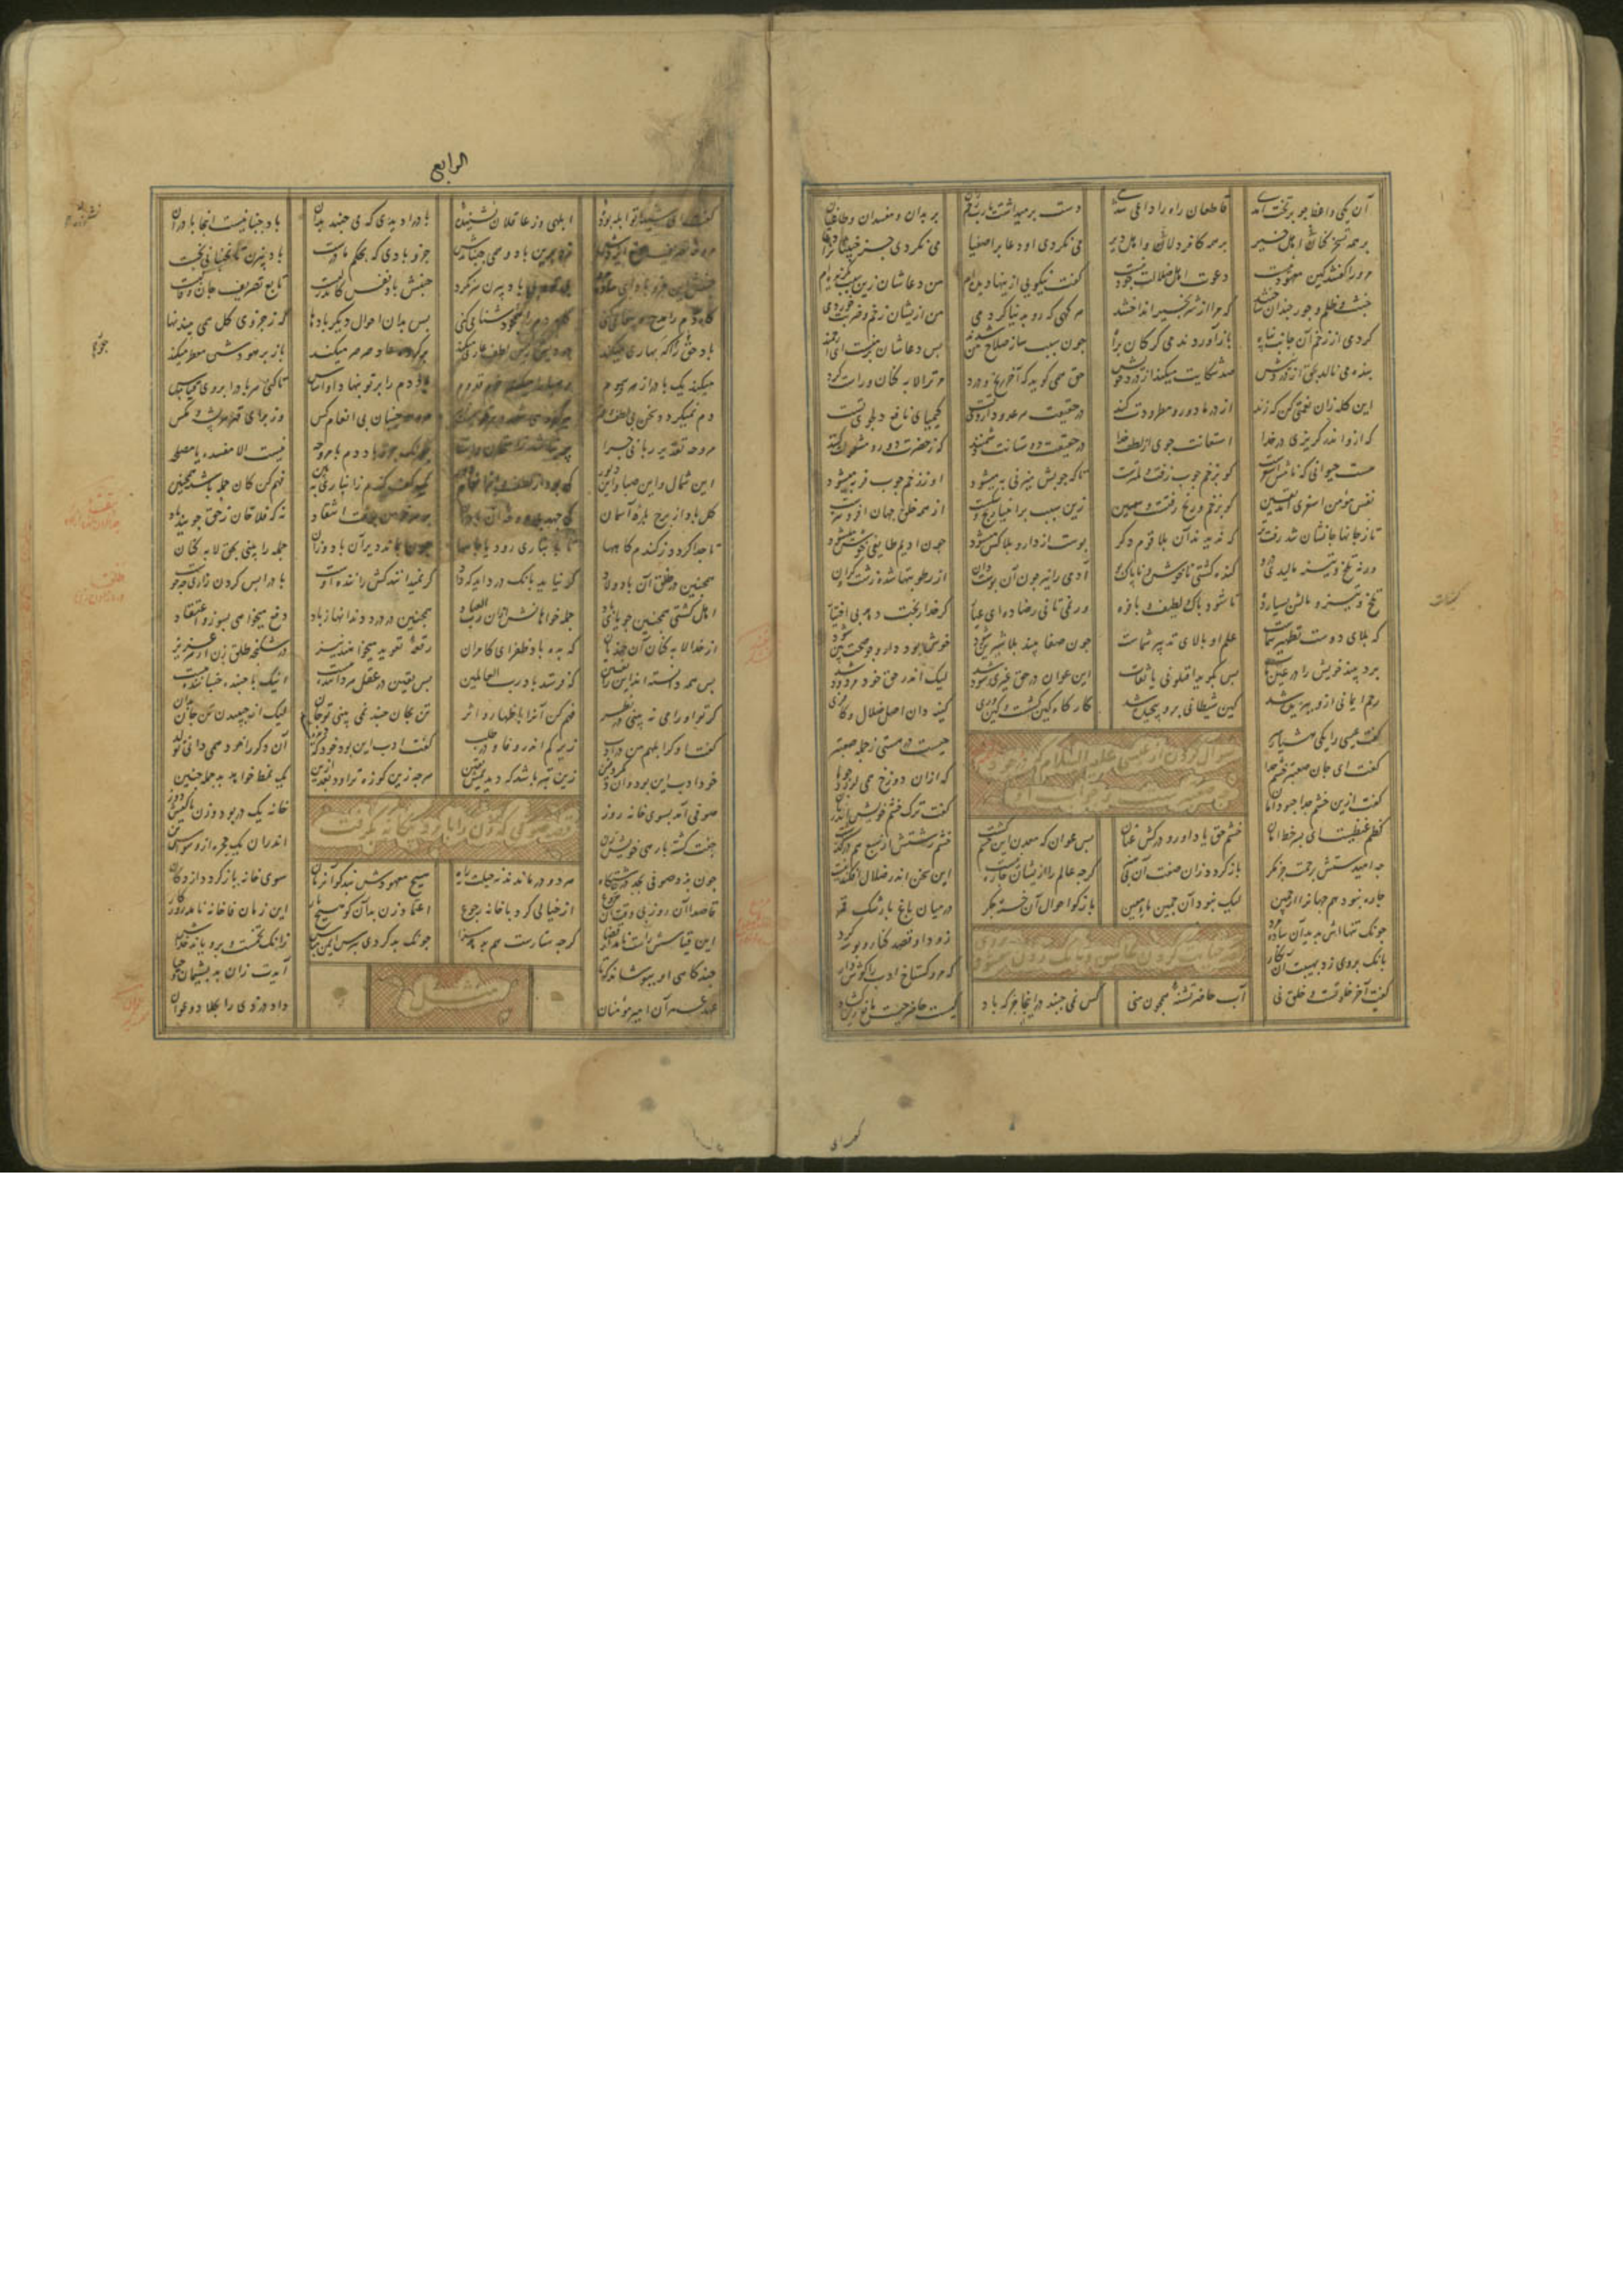 آن یکی واعظ جو بر تخت آمدی قاطعان راه را داعی شدی دست برمیداشت یا رب رحم ران بر بدان و مفسدان و طاغیان
بر همه تسخرکنان اهل خیر بر همه کافردلان و اهل دیر می نکردی او دعا بر اصفیا می نکردی جز خبیثان را دعا
مر ورا گفتند کین معهود نیست دعوت اهل ضلالت جود نیست گفت نیکویی ازینها دیده‌ام من دعاشان زین سبب بگزیده‌ام
خبث و ظلم و جور جندان ساختند که مرا از شر بخیر انداختند هر کهی که رو بدنیا کردمی من ازیشان زخم و ضربت خوردمی
کردمی از زخم آن جانب پناه باز آوردندمی کرکان براه جون سبب ساز صلاح من شدند بس دعاشان بر منست ای هوشمند
بنده می نالد بحق از درد و نیش صد شکایت میکند از درد خویش حق همی کوید که آخر رنج و درد مر ترا لابه کنان و راست کرد
این کله زان نعمتی کن کت زند از در ما دور و مطرودت کند در حقیقت هر عدو داروی تست کیمیای نافع و دلجوی تست
که ازو اندر کریزی در خلا استعانت جوی از لطف خدا در حقیقت دوستانت دشمنند که ز حضرت دور و مشغولت کنند
هست حیوانی که نامش اسغرست کو بزخم جوب زفت و لمترست تا که جوبش میزنی به میشود او ز زخم جوب فربه میشود
نفس مؤمن اسغری آمد یقین کو بزخم رنج زفتست و سمین زین سبب بر انبیا رنج و شکست از همه خلق جهان افزونترست
تا ز جانها جانشان شد زفت تر که ندیدند آن بلا قوم دکر بوست از دارو بلاکش میشود جون ادیم طایفی خوش میشود
ورنه تلخ و تیز مالیدی درو کنده کشتی ناخوش و ناپاک بو آدمی را نیز جون آن بوست دان از رطوبتها شده زشت و کران
تلخ و تیز و مالش بسیار ده تا شود پاک و لطیف و با فره ور نمی تانی رضا ده ای عیار کر خدا رنجت دهد بی اختیار
که بلای دوست تطهیر شماست علم او بالای تدبیر شماست جون صفا بیند بلا شیرین شود خوش شود دارو جو صحت بین شود
برد بیند خویش را در عین مات بس بکوید اقتلونی یا ثقات این عوان در حق غیری سود شد لیک اندر حق خود مردود شد
رحم ایمانی ازو ببریده شد کین شیطانی برو پیچیده شد کارکاه کین کشت و کین وری کینه دان اصل ضلال و کافری
سؤال کردن از عیسی علیه السلام که در وجود از همه صعبتر چیست و جواب او
کفت عیسی را یکی هشیار سر جیست در هستی ز جمله صعبتر
کفت ای جان صعبتر خشم خدا که ازان دوزخ همی لرزد جو ما
کفت ازین خشم خدا جبود امان کفت ترک خشم خویش اندر زمان
کظم غیظست ای پسر خط امان خشم حق یاد آور و درکش عنان بس عوان که معدن این خشم کشت خشم زشتش از سبع هم درکذشت
جه امیدستش برحمت جز مکر باز کردد زان صفت آن بی هنر کرجه عالم را ازیشان چاره نیست این سخن اندر ضلال افکندنیست
جاره نبود هم جهانرا از جمین لیک نبود آن جمین ماء معین باز کو احوال آن خسته جکر در میان باغ با رشک قمر
قصه خیانت کردن عاشق و بانک زدن معشوق
جونک تنهااش بدید آن ساده مرد زود او قصد کنار و بوسه کرد
بانک بروی زد بهیبت آن نکار که مرو کستاخ ادب را کوش دار
کفت آخر خلوتست و خلق نی آب حاضر تشنۀ همجون منی کس نمی جنبد درینجا جز که باد کیست حاضر جیست مانع زین کشاد
الرابع
کفت ای شیدا تو ابله بودۀ ابلهی وز عاقلان نشنودۀ باد را دیدی که می جنبد بدان باد جنبانیست اینجا باد ران
مروحه تصریف صنع ایزدش زد برین باد و همی جنباندش جزو بادی که بحکم ما درست باد بیزن تا نجنبانی نجست
جنبش این جزو باد ای ساده مرد بی تو و بی باد بیزن سر نکرد جنبش باد نفس کاندر لبست تابع تصریف جان و قالبست
کاه دم را مدح و پیغامی کنی کاه دم را هجو و دشنامی کنی بس بدان احوال دیکر بادها که ز جزوی کل همی بیند نها
باد حق را که بهاری میکند در دیش زین لطف عاری میکند بر کروه عاد صرصر میکند باز بر هودش معطر میکند
میکند یک باد را زهر سموم مر صبا را میکند خرم قدوم باد دم را بر تو بنهاد او اساس تا کنی هر باد را بر وی قیاس
دم نمیکردد سخن بی لطف و قهر بر کروهی شهد و بر قومیست زهر مروحه جنبان پی انعام کس وز برای قهر هر پشه و مکس
مروحه تقدیر ربانی جرا پر نباشد ز امتحان و ابتلا جونک جزو باد دم یا مروحه نیست الا مفسده یا مصلحه
این شمال و این صبا و این دبور کی بود از لطف و از انعام دور یک کف کندم ز انباری ببین فهم کن کان جمله باشد همجنین
کل باد از برج باد آسمان کی جهد بی مروحه آن باد ران بر سر خرمن بوقت انتقاد نه که فلاحان ز حق جویند باد
تا جدا کردد ز کندم کاهها تا بانباری رود یا چاهها جون بماند دیر آن باد وزان جمله را بینی بحق لابه کنان
همجنین در طلق آن باد ولاد کر نیاید بانک درد آید که داد کر نمیدانند کش راننده اوست باد را بس کردن زاری جه خوست
اهل کشتی همجنین جویای باد جمله خواهانش ازان رب العباد همجنین در درد دندانها ز باد دفع میخواهی بسوز و اعتقاد
از خدا لابه کنان آن جندیان که بده باد ظفر ای کامران رقعۀ تعویذ میخواهند نیز در شکنجه طلق زن از هر عزیز
بس همه دانسته اند این را یقین که فرستد باد رب العالمین بس یقین در عقل هر داننده هست اینک با جنبنده جنباننده هست
کر تو او را می نه بینی در نظر فهم کن آنرا باظهار اثر تن بجان جنبد نمی بینی تو جان لیک از جنبیدن تن جان بدان
کفت او کر ابلهم من در ادب زیرکم اندر وفا و در طلب کفت ادب این بود خود که دیده شد آن دکر را خود همی دانی تو لد
خود ادب این بود و آن دکر دفین زین بتر باشد که دیدیمش یقین هرجه زین کوزه تراود بعد ازین یک نمط خواهد بدن جمله جنین
قصه صوفی که زن را با مرد بیگانه بگرفت
صوفی آمد بسوی خانه روز خانه یک در بود و زن با کفش دوز
جفت کشته با رهی خویش زن اندران یک حجره از وسواس تن
جون بزد صوفی بجد در چاشتکاه هر دو درماندند نه حیلت نه راه هیچ معهودش نبد کو آن زمان سوی خانه باز کردد از دکان
قاصدا آن روز بی وقت آن مروع از خیالی کرد با خانه رجوع اعتماد زن بدان کو هیچ بار این زمان فا خانه نامد او ز کار
این قیاسش راست نامد از قضا کرجه ستارست هم بدهد سزا جونک بد کردی بترس ایمن مباش زانک تخمست و برویاند خداش
جند کاهی او بپوشاند که تا آیدت زان بد پشیمان و حیا
مثل
عهد عمر آن امیر مؤمنان داد دزدی را بجلاد و عوان